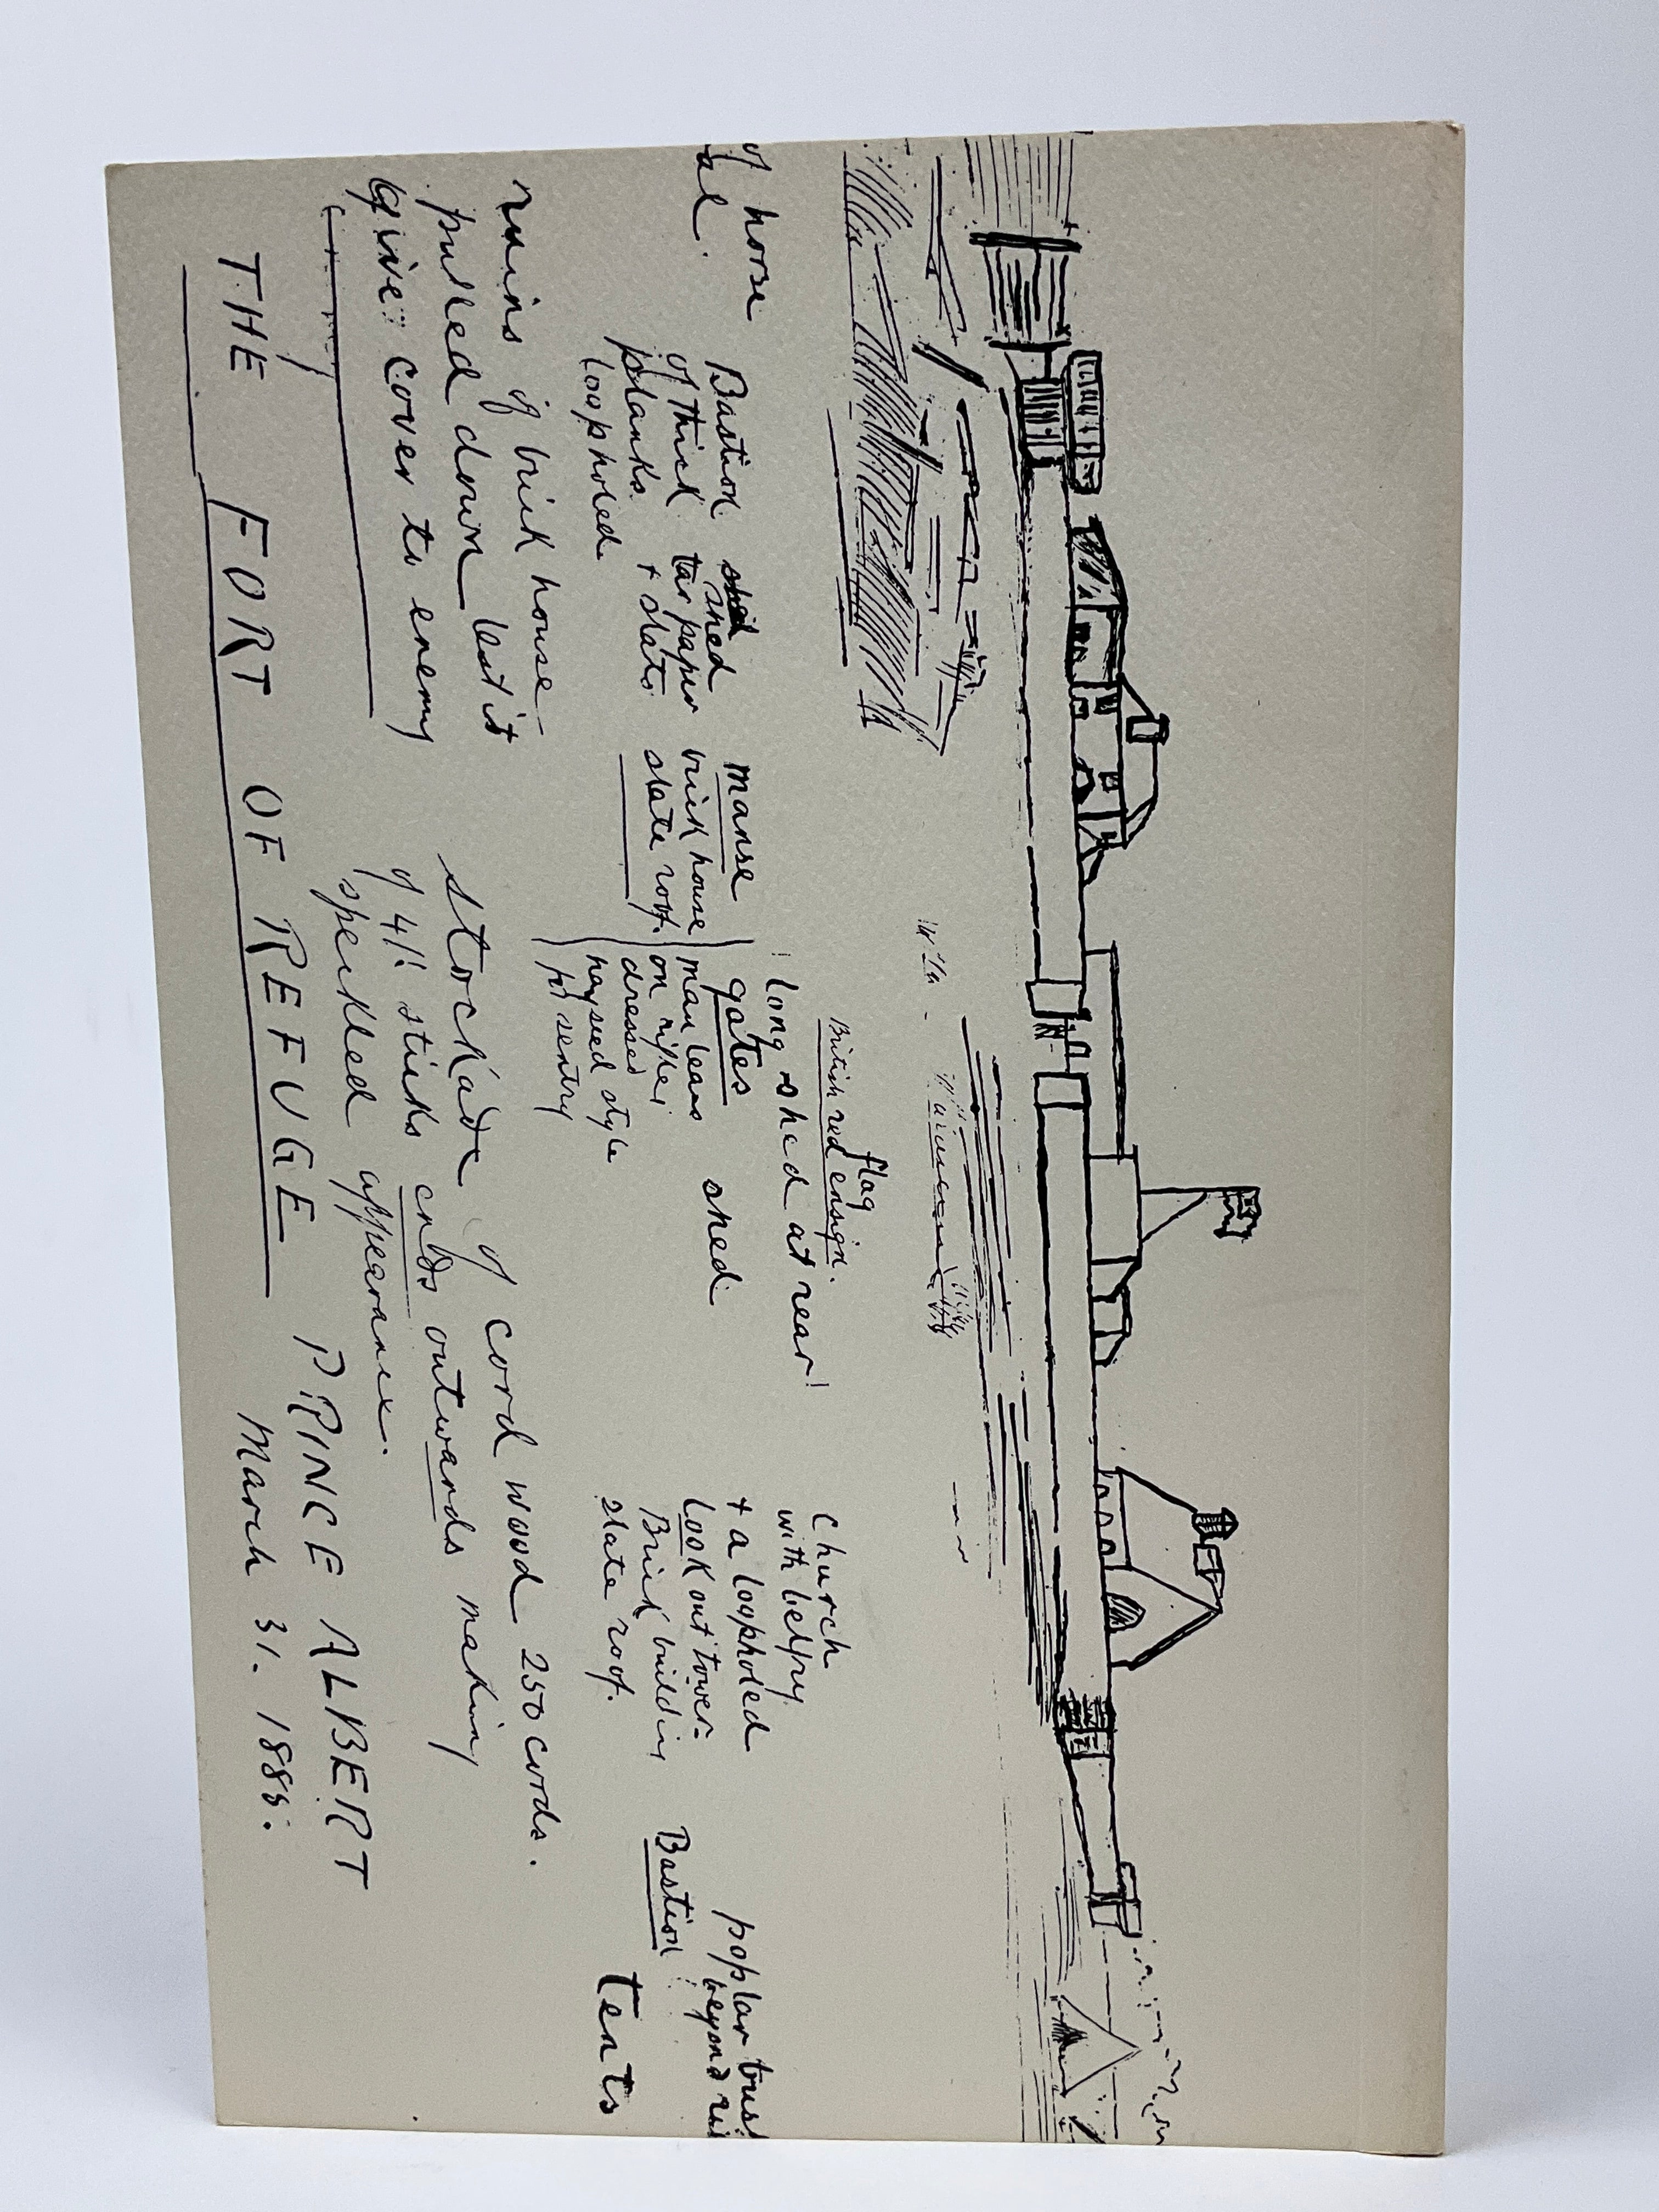 flag
British red ensign.
long shed at rear!
of horse
al.
Bastion shed
of thick tar paper
planks. + slats
loopholed
manse
brick house
slate roof.
gates
man leans
on rifle,
dressed
hayseed style
for sentry
shed
Church
with belfry
+ a loopholed
look out tower-
Brick building
slate roof.
poplar trees
beyond
Bastion
Tents
ruins of brick house-
pulled down lest it
give cover to enemy
stockade of cord wood 250 cords.
of 4ft sticks ends outwards making
speckled appearance.
THE FORT OF REFUGE PRINCE ALBERT
March 31. 1885.